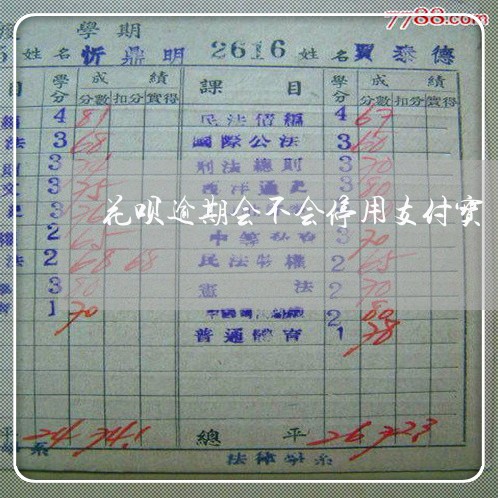 7788.com
學期
姓名 忻鼎明 2616 姓名 賈泰德
目 學分 成績 課目 學分 成績
分數 扣分 實得 分數 扣分 實得
4 81 民法債編 4 67
法 3 68 國際公法 3 60
3 刑法總則 3 70
3 75 西洋通史 3 80
花呗逾期会不会停用支付宝
2 65 3 70
法 2 68 68 民法物權 2 65
3 80 憲法 2 70
1 70 2 80
普通體育 1 78
平 24 74.1 總平 26 72.3
系 法律學系